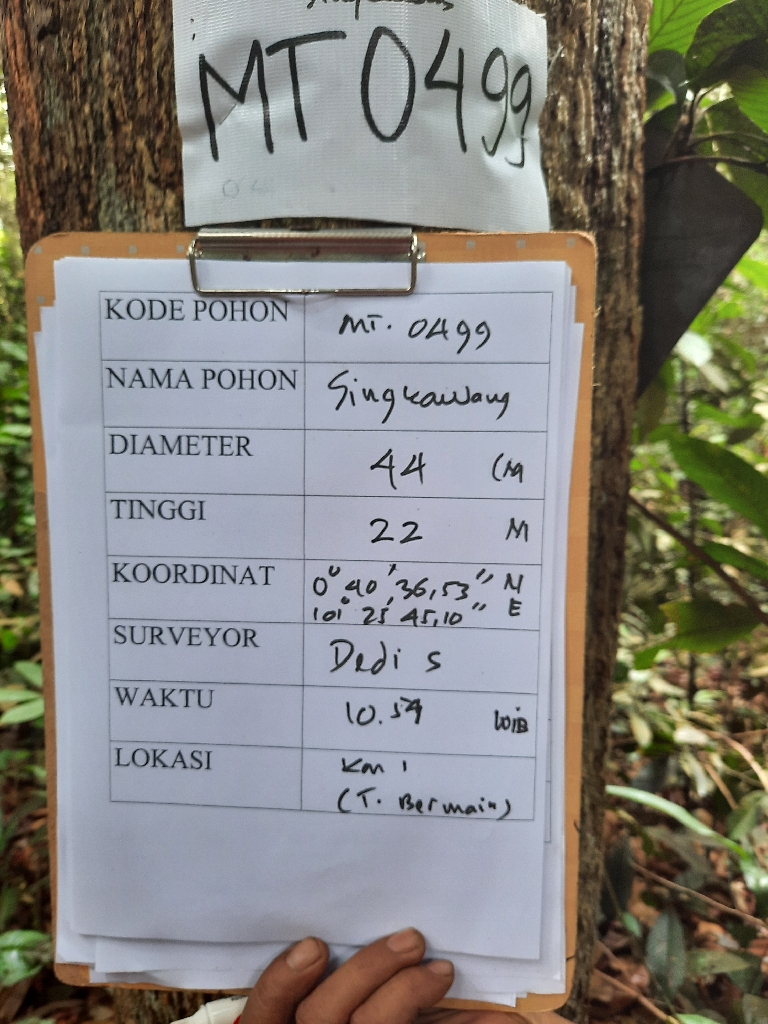 MT 0499
KODE POHON MT. 0499
NAMA POHON Singkawang
DIAMETER 44 CM
TINGGI 22 M
KOORDINAT 0° 40' 36,53" N
101° 25' 45,10" E
SURVEYOR Dedi S
WAKTU 10.54 WIB
LOKASI Km 1
(T. Bermain)